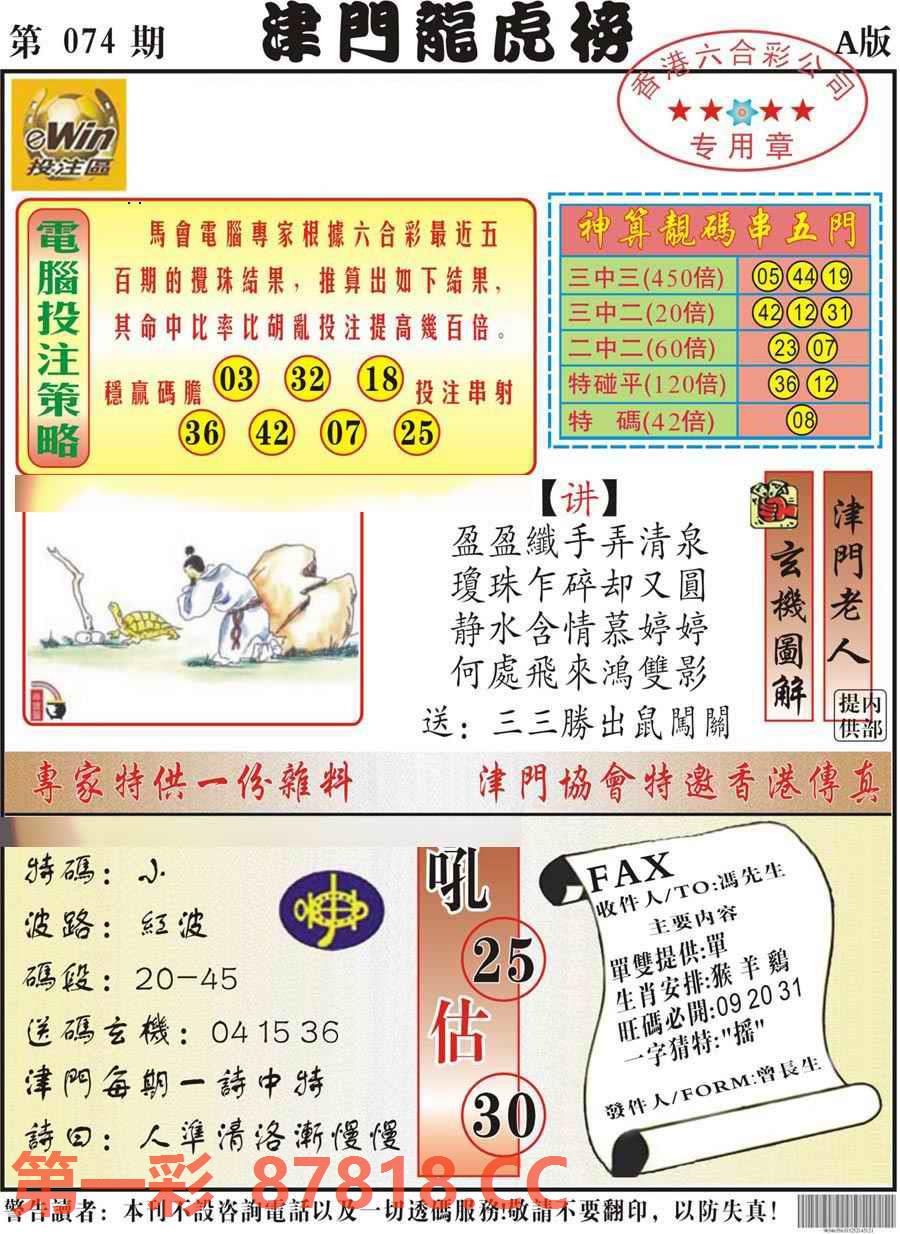 第 074 期
津門龍虎榜
A版
香港六合彩公司
专用章
eWin
投注區
電腦投注策略
馬會電腦專家根據六合彩最近五
百期的攪珠結果，推算出如下結果，
其命中比率比胡亂投注提高幾百倍。
穩贏碼膽 03 32 18 投注串射
36 42 07 25
神算靚碼串五門
三中三(450倍) 05 44 19
三中二(20倍) 42 12 31
二中二(60倍) 23 07
特碰平(120倍) 36 12
特 碼(42倍) 08
【讲】
盈盈纖手弄清泉
瓊珠乍碎却又圓
静水含情慕婷婷
何處飛來鴻雙影
送：三三勝出鼠闖關
玄機圖解
津門老人
内部提供
專家特供一份雜料
津門協會特邀香港傳真
特碼：小
波路：紅波
碼段：20-45
送碼玄機：04 15 36
津門每期一詩中特
詩曰：人準清洛漸慢慢
吼
25
估
30
FAX
收件人/TO:馮先生
主要内容
單雙提供:單
生肖安排:猴 羊 鷄
旺碼必開:09 20 31
一字猜特:"摇"
發件人/FORM:曾長生
第一彩 87818.CC
警告讀者：本刊不設咨詢電話以及一切透碼服務!敬請不要翻印，以防失真!